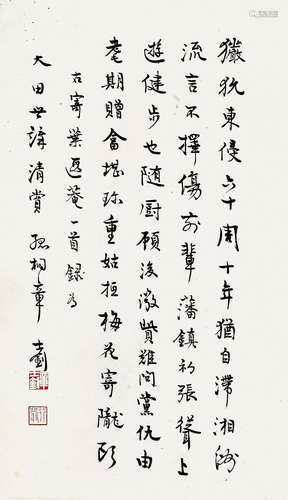 玁狁東侵六十周十年猶自滯湘洲
流言不擇傷前輩藩鎮初張聳上
遊健步也随厨顧後難問黨仇由
耄期贈畣堪珍重姑梅花寄隴頭
右寄葉遐菴一首録為
大田世講清賞 孤桐章士釗